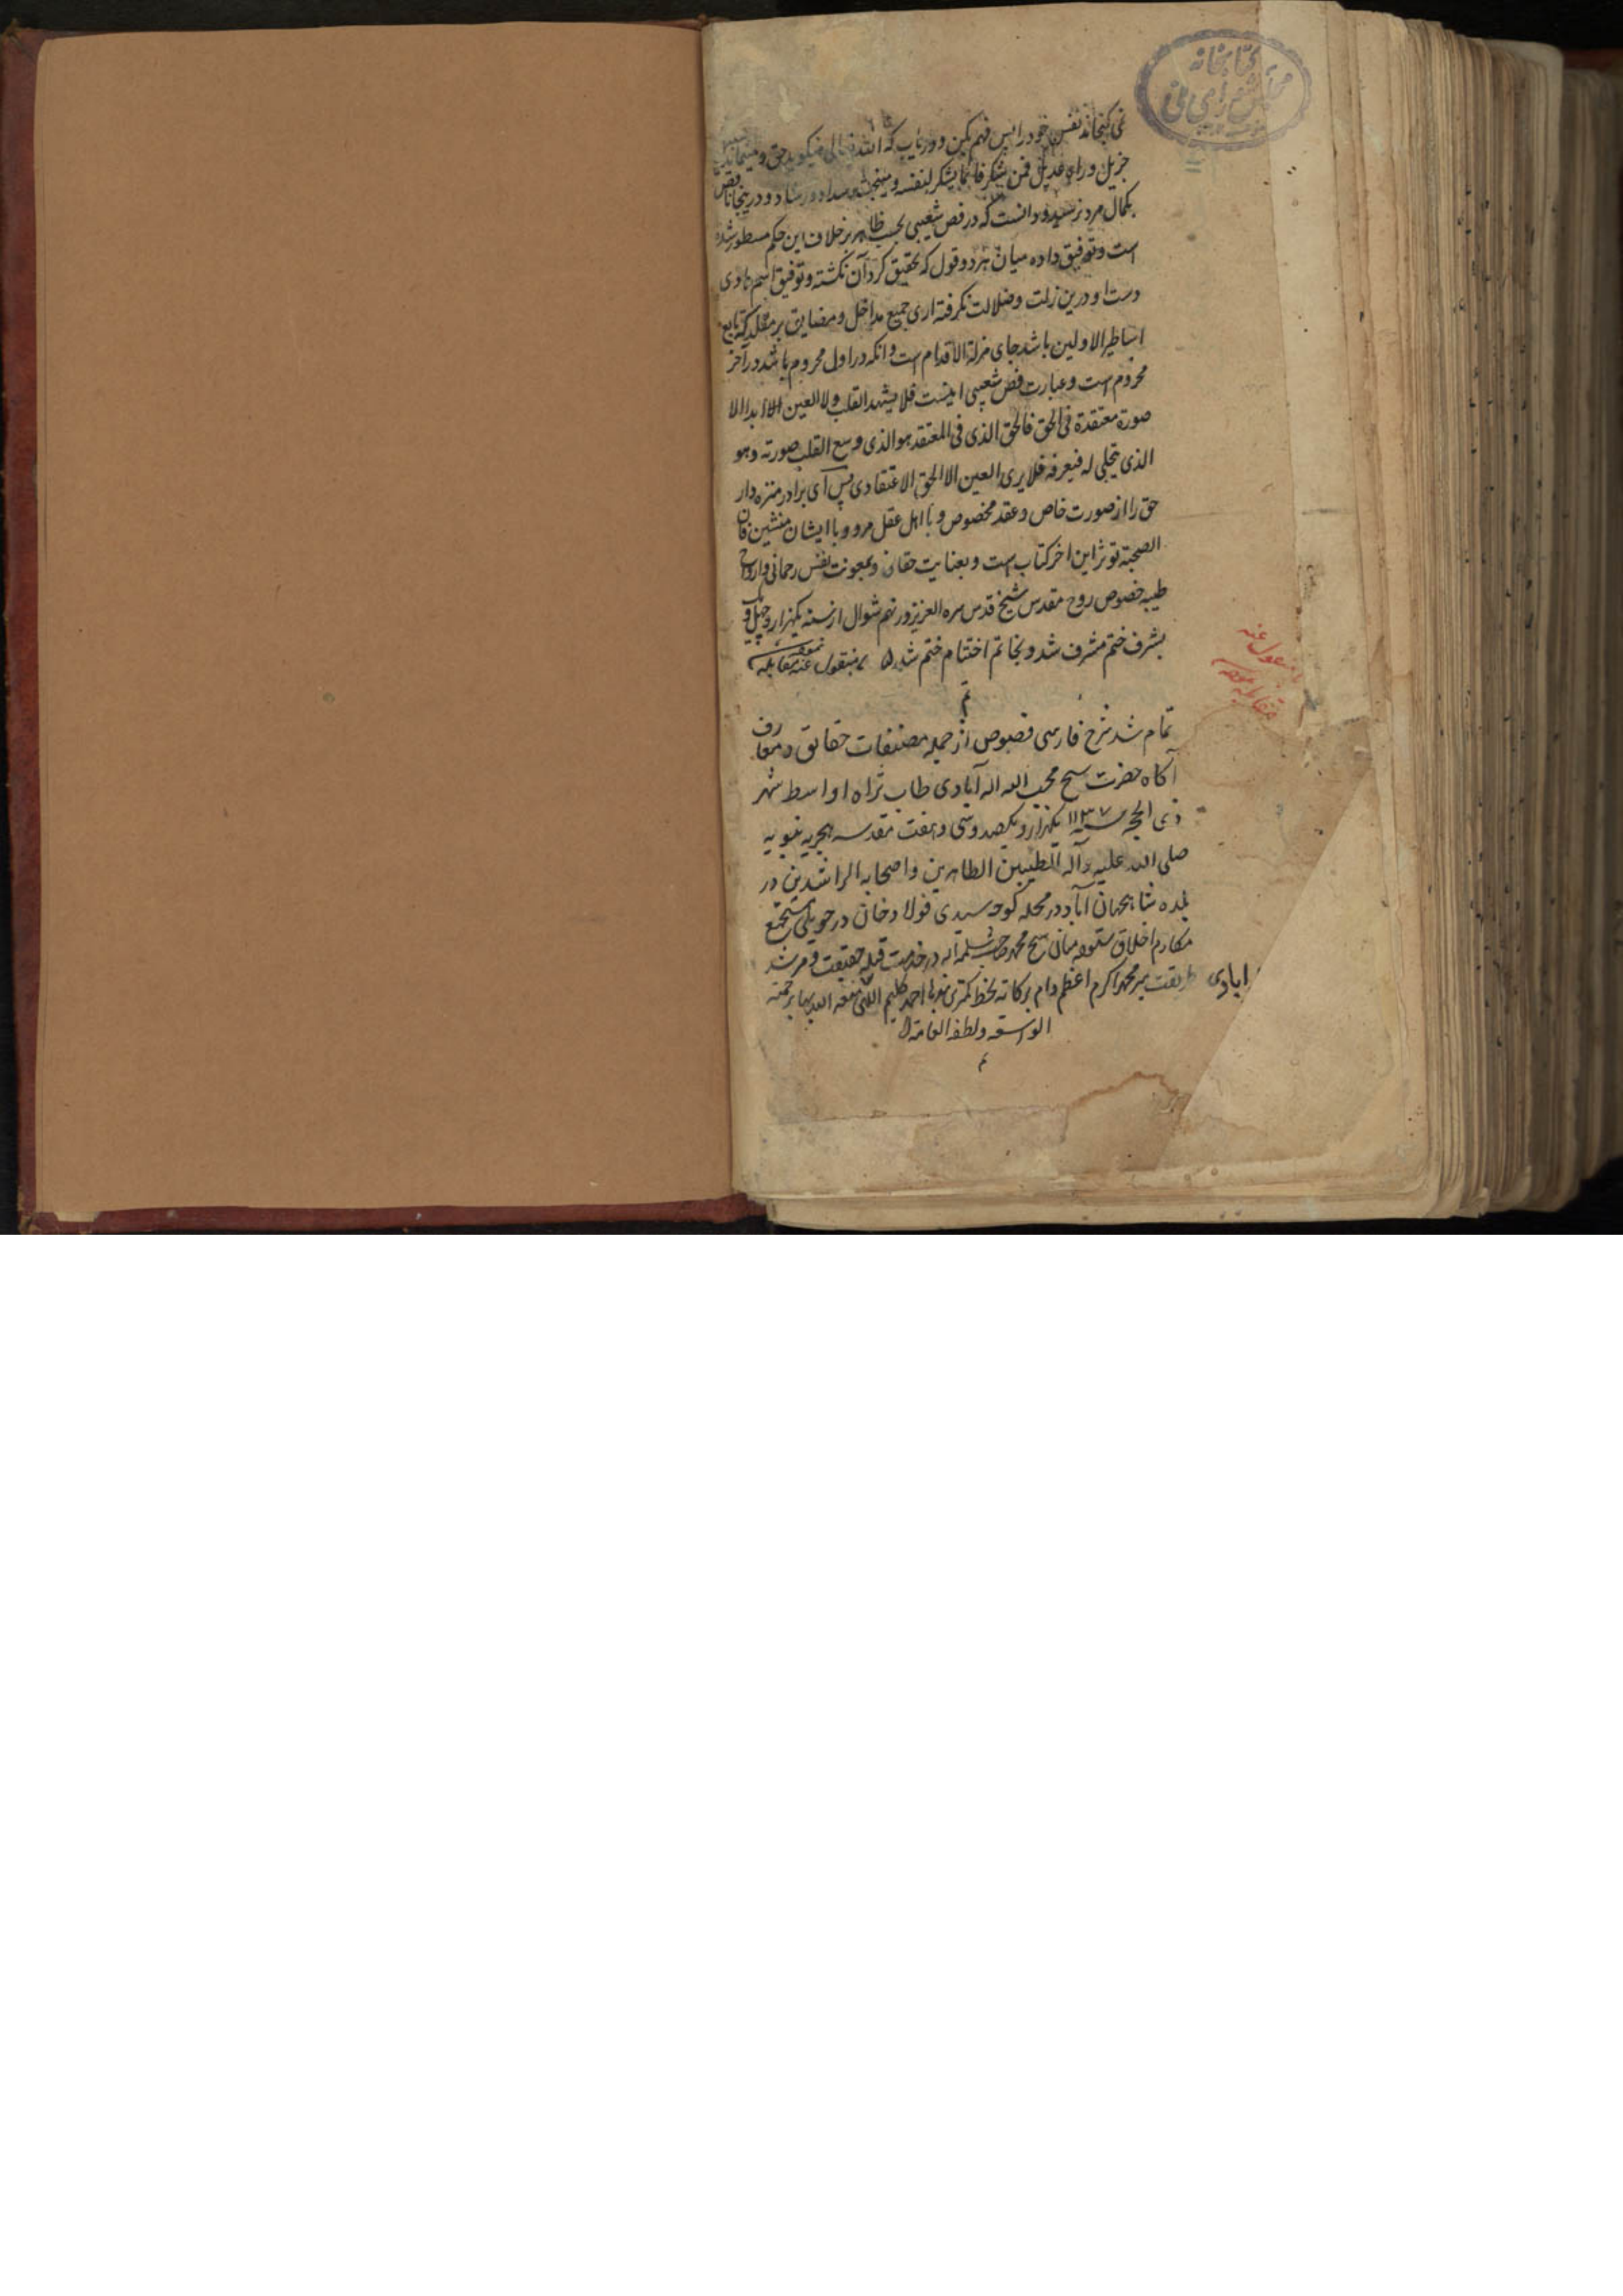 کتابخانه
مجلس شورای ملی
نمی گنجاند نفس خود را پس فهم بکن و دریاب که الله تعالی میگوید حق و مینماید
جزیل و راه عدیل فمن شکر فانما یشکر لنفسه و سداد و رشاد و درینجا ناقص
بکمال مرد نرسید و دانست که در فص شعیبی بحسب ظاهر بر خلاف این حکم مسطور شده
است و توفیق داده میان هر دو قول که تحقیق کرد آن نکشته و توفیق اسم هادی
دست او درین زلت و ضلالت نکرفته اری جمیع مداخل و مضایق بر مقلد که تابع
اساطیر الاولین باشد جای مزلة الاقدام است و انکه در اول محروم باشد در آخر
محروم است و عبارت فص شعیبی اینست فلا یشهد القلب ولا العین ابدا الا
صورة معتقدة فی الحق فالحق الذی فی المعتقد هو الذی وسع القلب صورته وهو
الذی یتجلی له فیعرفه فلا یری العین الا الحق الاعتقادی پس ای برادر منزه دار
حق را از صورت خاص و عقد مخصوص و با اهل عقل مرو و با ایشان منشین فان
الصحبة توثر این اخر کتاب است و بعنایت حقانی و بمعونت نفس رحمانی و ارواح
طیبه خصوص روح مقدس شیخ قدس سره العزیز در نهم شوال از سنه یکهزار و چهل و
بشرف ختم مشرف شد و بخاتم اختتام ختم شد بمنقول عنه مقابله
منقول عنه
مقابله
تم
تمام شد شرح فارسی فصوص از جمله مصنفات حقایق و معارف
آگاه حضرت شیخ محب الله اله آبادی طاب ثراه اواسط شهر
ذی الحجه سنه ۱۱۳۷ یکهزار و یکصد و سی و هفت مقدسه هجریه نبویه
صلی الله علیه و آله الطیبین الطاهرین و اصحابه الراشدین در
بلده شاهجهان آباد در محله کوچه سیدی فولاد خان در حویلی مستجمع
مکارم اخلاق ستوده میان شیخ محمد صاحب سلمه الله در خدمت قبله حقیقت و مرشد
طریقت میر محمد اکرم اعظم دام برکاته بخط کمترین احمد کلیم اللهی نفعه الله بها برحمته
ابادی
الواسعه و لطفه العامة